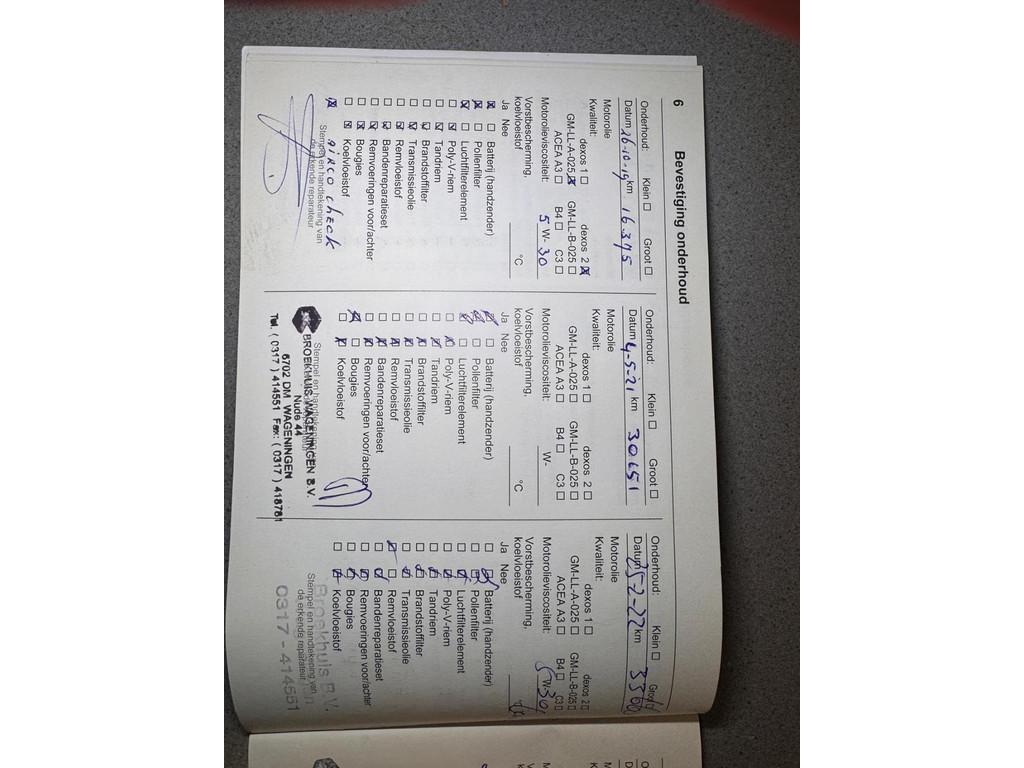 6
Bevestiging onderhoud
Onderhoud: Klein Groot
Datum 16-10-19 km 16.375
Motorolie
Kwaliteit: dexos 1 dexos 2
GM-LL-A-025 GM-LL-B-025
ACEA A3 B4 C3
Motorolieviscositeit: 5 W- 30
Vorstbescherming,
koelvloeistof °C
Ja Nee
Batterij (handzender)
Pollenfilter
Luchtfilterelement
Poly-V-riem
Tandriem
Brandstoffilter
Transmissieolie
Remvloeistof
Bandenreparatieset
Remvoeringen voor/achter
Bougies
Koelvloeistof
Airco check
Stempel en handtekening van
de erkende reparateur
Onderhoud: Klein Groot
Datum 4-5-21 km 30.651
Motorolie
Kwaliteit: dexos 1 dexos 2
GM-LL-A-025 GM-LL-B-025
ACEA A3 B4 C3
Motorolieviscositeit: W-
Vorstbescherming,
koelvloeistof °C
Ja Nee
Batterij (handzender)
Pollenfilter
Luchtfilterelement
Poly-V-riem
Tandriem
Brandstoffilter
Transmissieolie
Remvloeistof
Bandenreparatieset
Remvoeringen voor/achter
Bougies
Koelvloeistof
Stempel en handtekening
BROEKHUIS WAGENINGEN B.V.
Nude 44
6702 DM WAGENINGEN
Tel. ( 0317 ) 414551 Fax: ( 0317 ) 418781
Onderhoud: Klein Groot
Datum 25-2-22 km
Motorolie
Kwaliteit: dexos 1 dexos 2
GM-LL-A-025 GM-LL-B-025
ACEA A3 B4 C3
Motorolieviscositeit: 5 W- 30
Vorstbescherming,
koelvloeistof
Ja Nee
Batterij (handzender)
Pollenfilter
Luchtfilterelement
Poly-V-riem
Tandriem
Brandstoffilter
Transmissieolie
Remvloeistof
Bandenreparatieset
Remvoeringen voor/achter
Bougies
Koelvloeistof
Broekhuis B.V.
Stempel en handtekening van
de erkende reparateur
0317 - 414551